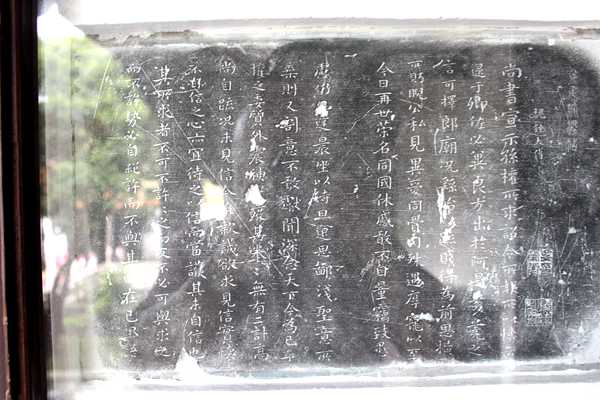 尚書宣示孫權所求詔令所報所以博
逮于卿佐必冀良方出於阿是芻蕘之
言可擇郎廟況繇始以疏賤得為前恩橫
所眄公私見異愛同骨肉殊遇厚寵以至
今日再世榮名同國休戚敢不自量竊致愚
慮仍日達晨坐以待旦退思鄙淺聖意所
棄則又割意不敢獻聞深念天下今為已平
權之委質外震神武度其拳拳無有二計高
尚自疏況未見信今推款誠欲求見信實懷
不自信之心亦宜待之以信而當護其未自信也
其所求者不可不許許之而反不必可與求之
而不許勢必自絕許而不與其曲在己里語